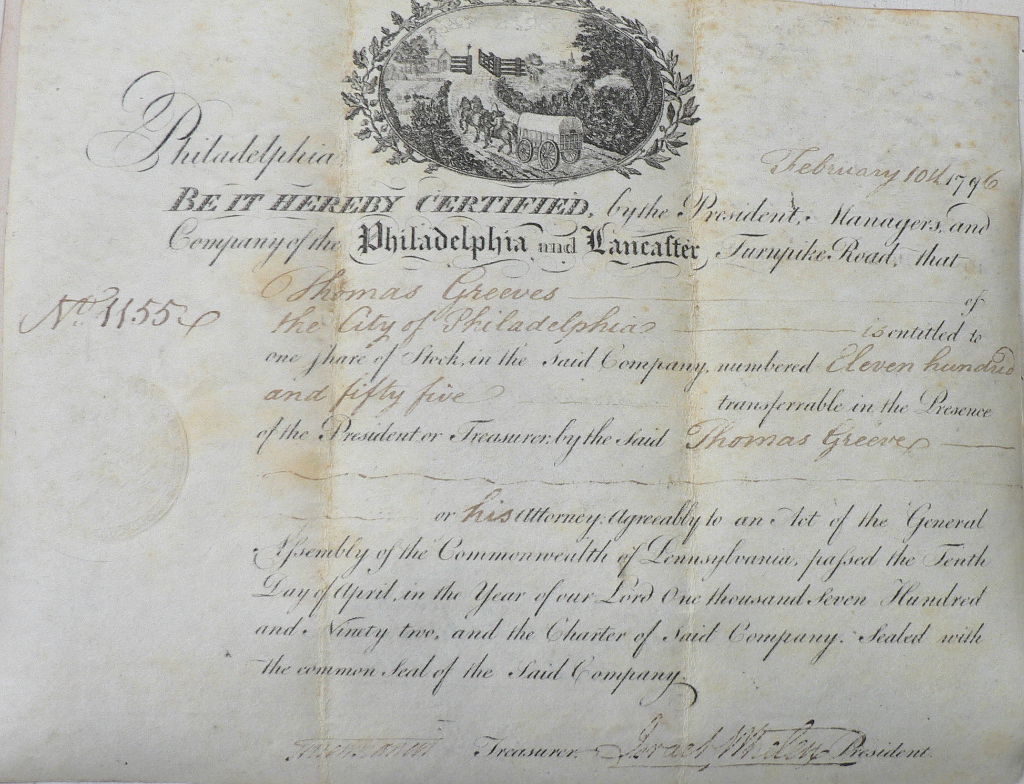 Philadelphia
February 10th 1796
BE IT HEREBY CERTIFIED, by the President, Managers, and
Company of the Philadelphia and Lancaster Turnpike Road, that
Thomas Greeves of
No. 1155
the City of Philadelphia is entitled to
one share of Stock, in the Said Company, numbered Eleven hundred
and fifty five transferrable in the Presence
of the President or Treasurer, by the Said Thomas Greeves
or his Attorney, Agreeably to an Act of the General
Assembly of the Commonwealth of Pennsylvania, passed the Tenth
Day of April, in the Year of our Lord One thousand Seven Hundred
and Ninety two, and the Charter of Said Company. Sealed with
the common Seal of the Said Company.
Treasurer. Israel Whelen President.